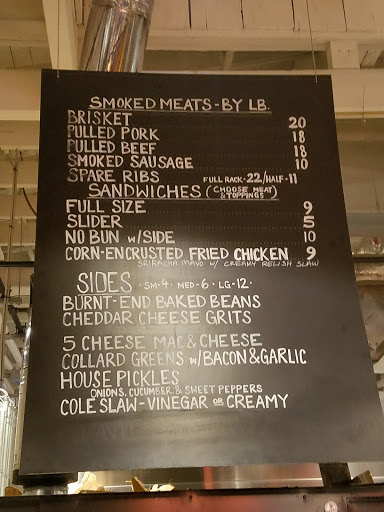 SMOKED MEATS - BY LB.
BRISKET 20
PULLED PORK 18
PULLED BEEF 18
SMOKED SAUSAGE 10
SPARE RIBS FULL RACK - 22 / HALF - 11
SANDWICHES (CHOOSE MEAT & TOPPINGS)
FULL SIZE 9
SLIDER 5
NO BUN w/SIDE 10
CORN-ENCRUSTED FRIED CHICKEN 9
SRIRACHA MAYO w/ CREAMY RELISH SLAW
SIDES - SM-4 - MED-6 - LG-12 -
BURNT-END BAKED BEANS
CHEDDAR CHEESE GRITS
5 CHEESE MAC & CHEESE
COLLARD GREENS w/BACON & GARLIC
HOUSE PICKLES
ONIONS, CUCUMBER & SWEET PEPPERS
COLE SLAW - VINEGAR OR CREAMY